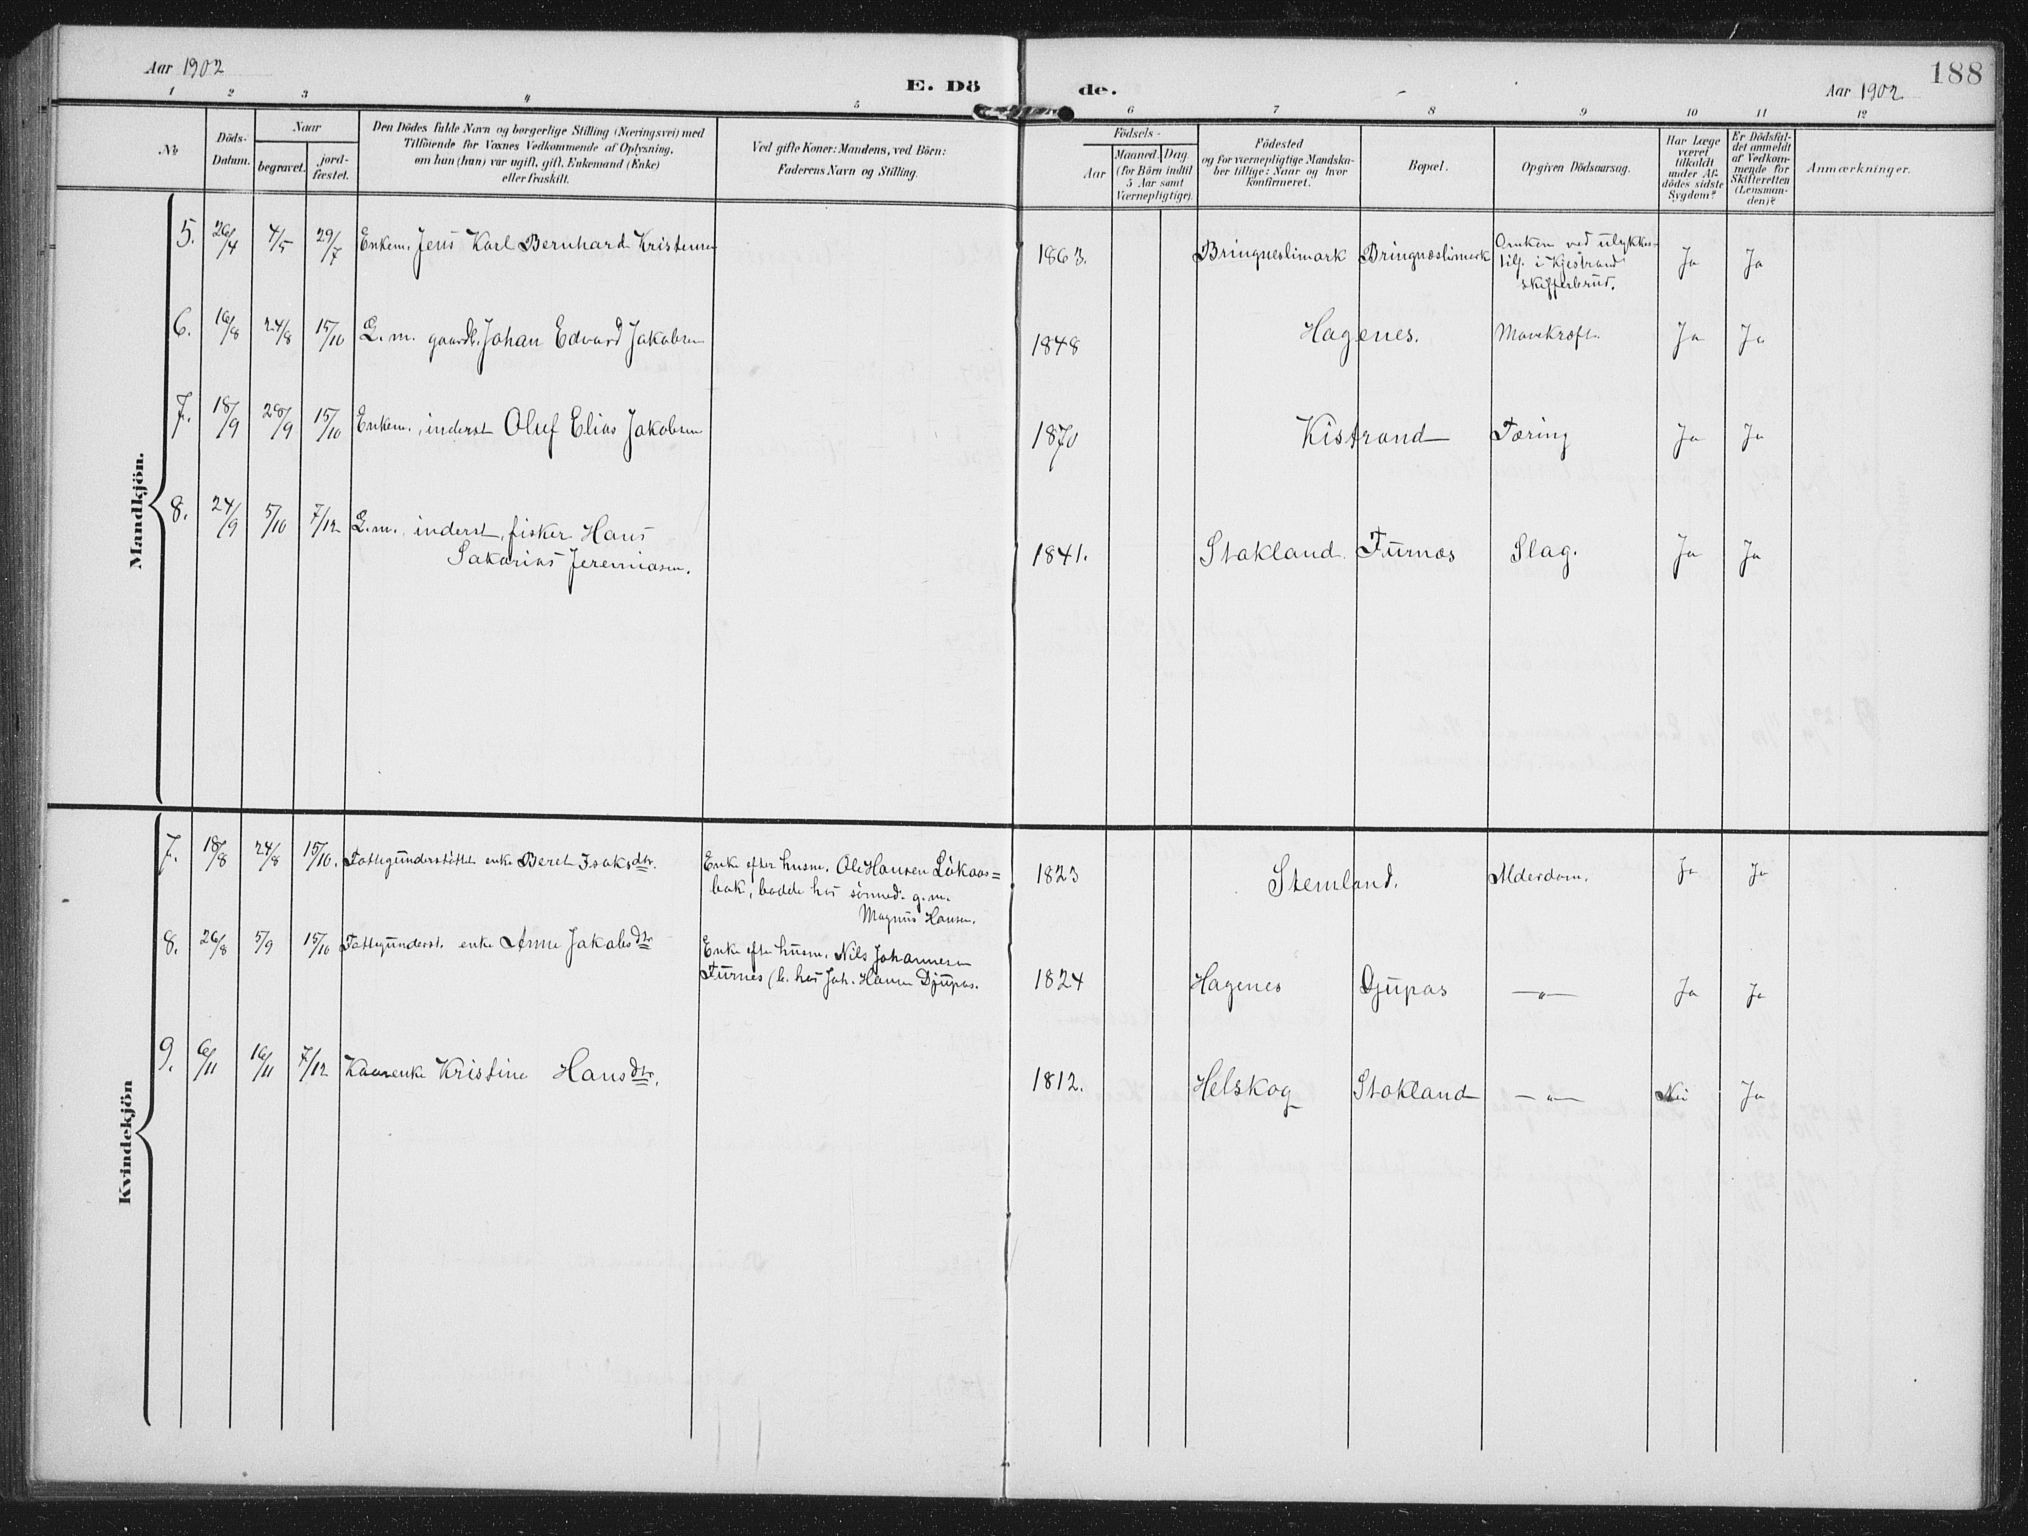 Aar 1902
E. Dö
de.
Aar 1902
188
1 2 3 4 5 6 7 8 9 10 11 12
No
Döds-
Datum.
Naar
begravet.
jord-
fæstet.
Den Dödes fulde Navn og borgerlige Stilling (Næringsvei) med
Tilföiende for Voxnes Vedkommende af Oplysning,
om han (hun) var ugift, gift, Enkemand (Enke)
eller fraskilt.
Ved gifte Koner: Mandens, ved Börn:
Faderens Navn og Stilling.
Födsels-
Aar
Maaned. Dag.
(for Börn indtil
5 Aar samt
Værnepligtige).
Födested
og for værnepligtige Mandska-
ber tillige: Naar og hvor
konfirmeret.
Bopæl.
Opgiven Dödsaarsag.
Har Læge
været
tilkaldt
under Af-
dödes sidste
Sygdom?
Er Dödsfal-
det anmeldt
af Vedkom-
mende for
Skifteretten
(Lensman-
den)?
Anmærkninger.
Mandkjön.
5. 26/4 4/5 29/7 Enkem. Jens Karl Bernhard Kristensen 1863. Bringneslimark Bringnæslimark Omkom ved ulykkes-
tilf. i Kjestrand
skifferbrud. Ja Ja
6. 16/8 24/8 15/10 G. m. gaardb. Johan Edvard Jakobsen 1848 Hagenes. Mavekræft. Ja Ja
7. 18/9 28/9 15/10 Enkem., inderst Oluf Elias Jakobsen 1870 Kistrand Tæring Ja Ja
8. 24/9 5/10 7/12 G.m., inderst, fisker Hans
Sakarias Jeremiasen. 1841. Stokland Furnæs Slag. Ja Ja
Kvindekjön
7. 18/8 24/8 15/10. Fattigunderstöttet enke Beret Isaksdtr. Enke efter husm. Ole Hansen Lökaas=
bak, bodde hos sönned. g.m.
Magnus Hansen. 1823 Stemland. Alderdom. Ja Ja
8. 26/8 5/9 15/10 Fattigunderst. enke Anne Jakobsdtr Enke efter husm. Nils Johannesen
Furnes (b. hos Joh. Hansen Djupos. 1824 Hagenes Djupos —"— Ja Ja
9. 6/11 16/11 7/12 Kaarenke Kristine Hansdtr. 1812. Helskog Stokland —"— Nei Ja